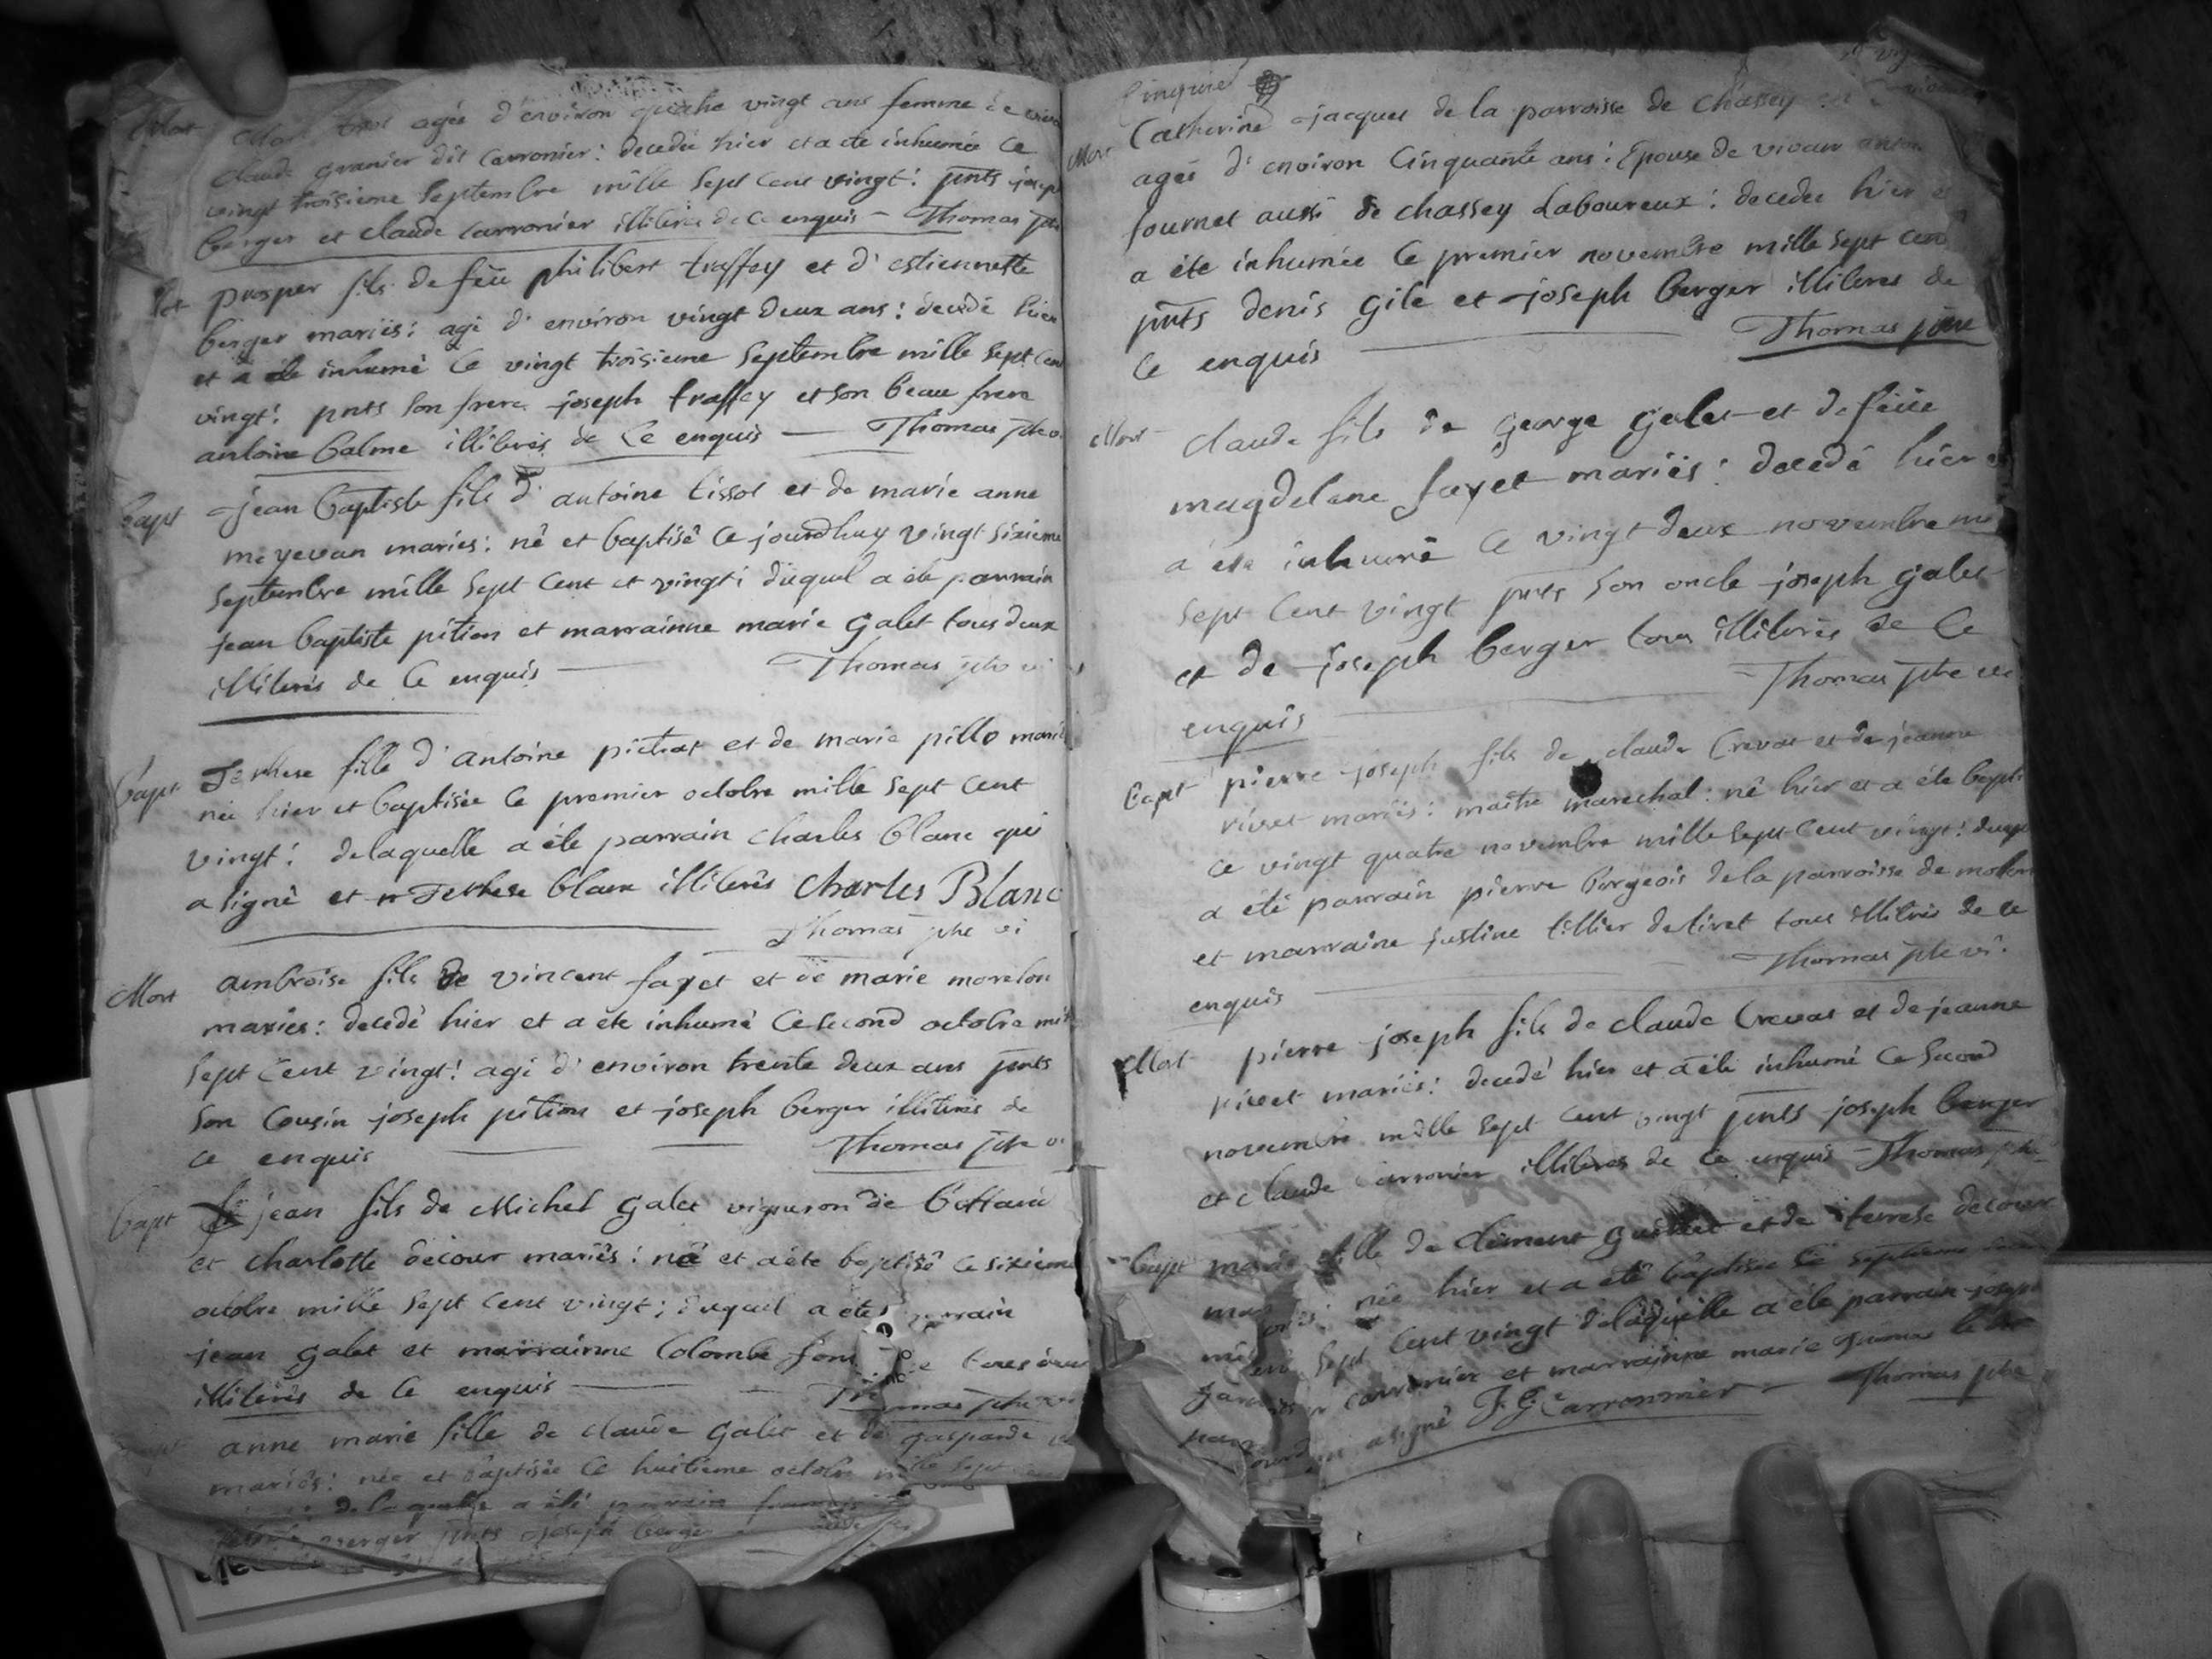 Mort
agée d'environ quatre vingt ans femme de
claude granier dit Carronier: decedée hier et a ete inhumée Ce
vingt troisieme Septembre mille Sept Cent vingt: pnts joseph
berger et claude Carronier illiteres de Ce enquis - Thomas
prosper fils de feu philibert traffey et d'estiennette
berger mariés: agé d'environ vingt deux ans: decedé hier
et a ete inhumé Ce vingt troisieme Septembre mille Sept Cent
vingt: pnts Son frere joseph traffey et Son beau frere
antoine balme illiterés de Ce enquis — Thomas ptre
bapt jean baptiste fils d'antoine tissot et de marie anne
mariés: né et baptisé Ce jourdhuy vingt Sixieme
Septembre mille Sept Cent et vingt: duquel a ete parrain
jean baptiste pition et marrainne marie galet tous deux
illiterés de Ce enquis — Thomas ptre vi
bapt Terhese fille d'antoine pictiat et de marie pillo mariés
née hier et baptisée Ce premier octobre mille Sept Cent
vingt: delaquelle a éte parrain Charles blanc qui
a signé et Terhese blanc illiterés Charles Blanc
Thomas ptre vi
Mort ambroise fils de vincent fayet et de marie morelon
mariés: decedé hier et a ete inhumé Ce Second octobre mil
Sept Cent vingt: agé d'environ trente deux ans pnts
Son Cousin joseph pition et joseph berger illiterés de
Ce enquis — Thomas ptre vi
bapt jean fils de Michel galet vigneron de
et charlotte decour mariés: né et a éte baptisé Ce sixieme
octobre mille Sept Cent vingt; duquel a éte parrain
jean galet et marrainne Colombe
illiterés de Ce enquis — Thomas ptre
anne marie fille de claude galet et de gasparde
mariés: née et baptisée Ce huitieme octobre mille Sept
de la quelle a été parrain
berger pnts joseph berger
Cinquieme
Mort Catherine jacques de la parroisse de Chassey
agée d'environ Cinquante ans: Epouse de vivant
fournet aussi de chassey Laboureur: decedée hier et
a éte inhumée Ce premier novembre mille Sept Cent
pnts denis gile et joseph berger illiteres de
Ce enquis — Thomas ptre
Mort claude fils de george galet et de feüe
magdelene fayet mariés: decedé hier et
a éte inhumé Ce vingt deux novembre mil
Sept Cent vingt pnts Son oncle joseph galet
et de joseph berger tous illiterés de Ce
enquis — Thomas ptre vi
bapt pierre joseph fils de claude Crevat et de jeanne
rivet mariés: maitre marechal: né hier et a éte bapt
Ce vingt quatre novembre mille Sept Cent vingt: duquel
a été parrain pierre borgeois de la parroisse de
et marraine justine tillier de tous illiterés de Ce
enquis — Thomas ptre vi.
Mort pierre joseph fils de claude Crevat et de jeanne
rivet mariés: decedé hier et a éte inhumé Ce Second
novembre mille Sept Cent vingt pnts joseph berger
et claude Carronier illiteres de Ce enquis - Thomas ptre
bapt fille de Clement et de terrese decour
née hier et a été baptisée Ce Septieme
Sept Cent vingt delaquelle a éte parrain joseph
Carronier et marrainne marie
a signé J G Carronnier - Thomas ptre